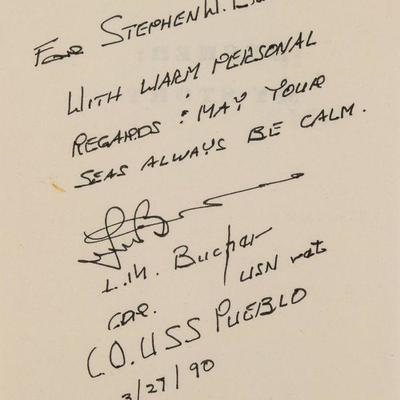 For STEPHEN W.
WITH WARM PERSONAL
REGARDS: MAY YOUR
SEAS ALWAYS BE CALM.
L.M. Bucher
CDR. USN ret
C.O. USS PUEBLO
3/27/90